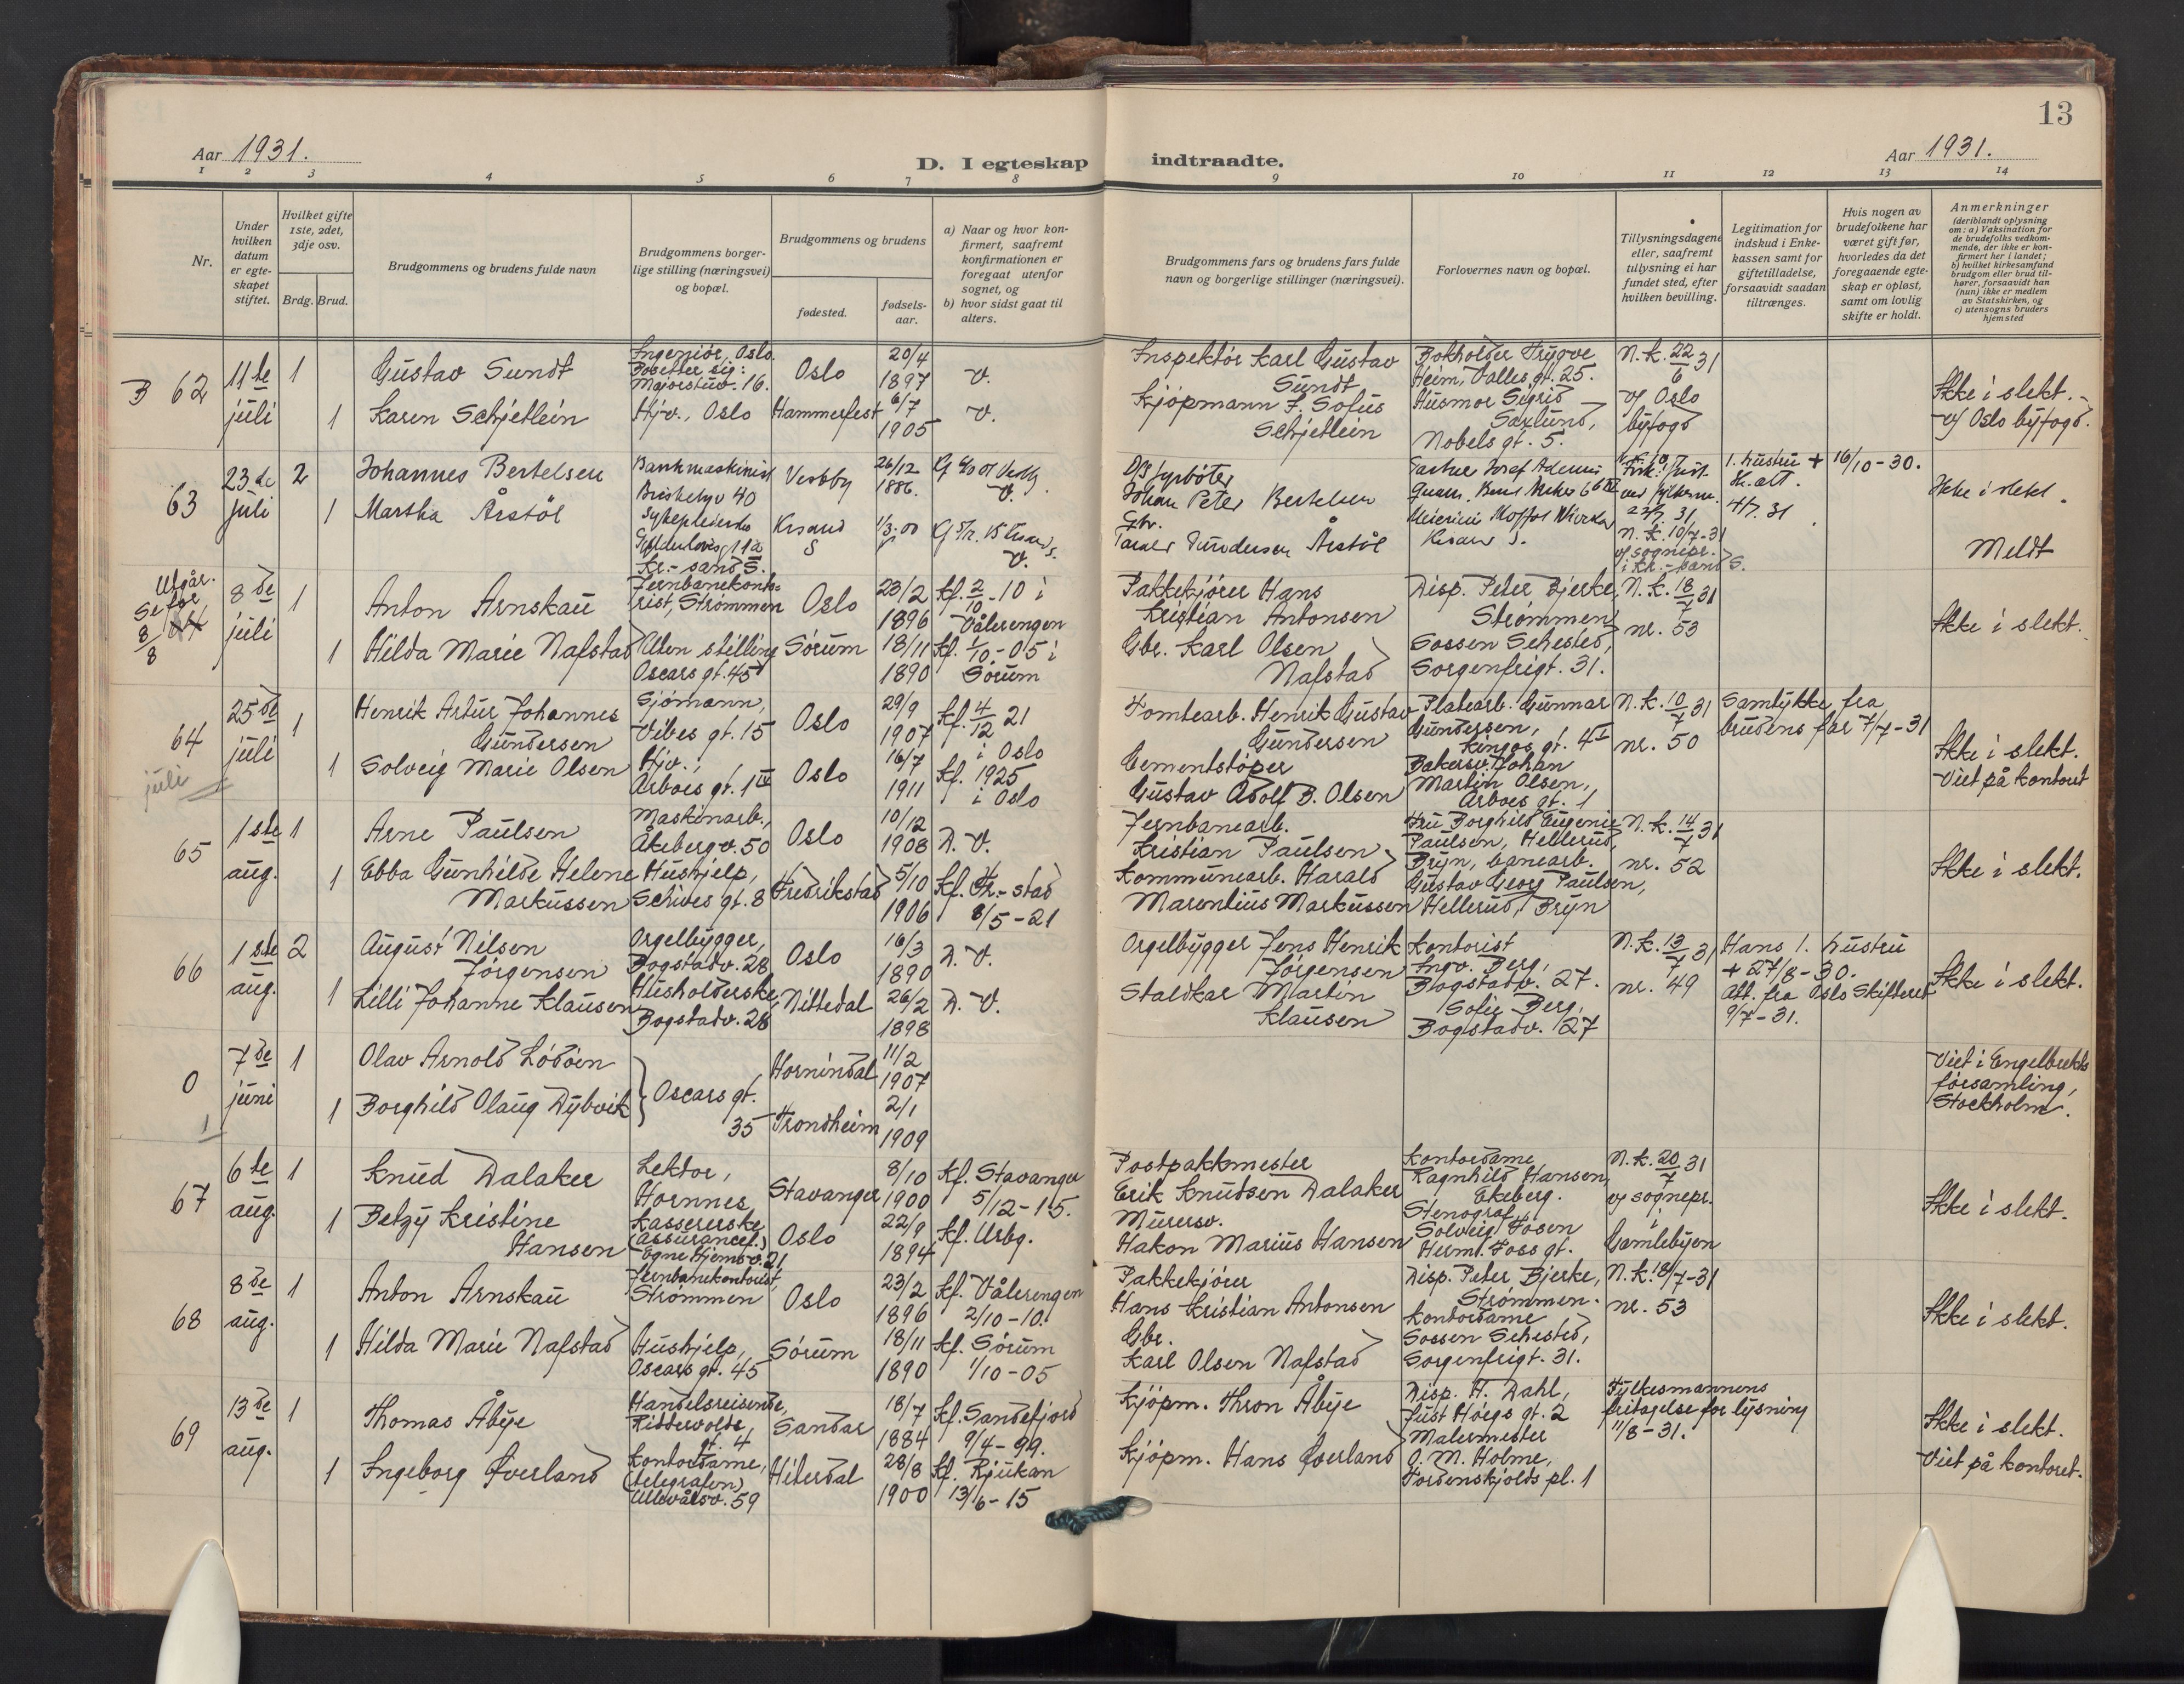 13
Aar 1931.
D. I egteskap indtraadte.
Aar 1931.
1 2 3 4 5 6 7 8 9 10 11 12 13 14
Nr.
Under hvilken datum er egteskapet stiftet.
Hvilket gifte 1ste, 2det, 3dje osv.
Brdg. Brud.
Brudgommens og brudens fulde navn
Brudgommens borgerlige stilling (næringsvei) og bopæl.
Brudgommens og brudens
fødested.
fødsels-aar.
a) Naar og hvor konfirmert, saafremt konfirmationen er foregaat utenfor sognet, og
b) hvor sidst gaat til alters.
Brudgommens fars og brudens fars fulde navn og borgerlige stillinger (næringsvei).
Forlovernes navn og bopæl.
Tillysningsdagene eller, saafremt tillysning ei har fundet sted, efter hvilken bevilling.
Legitimation for indskud i Enkekassen samt for giftetilladelse, forsaavidt saadan tiltrænges.
Hvis nogen av brudefolkene har været gift før, hvorledes da det foregaaende egteskap er opløst, samt om lovlig skifte er holdt.
Anmerkninger
(deriblandt oplysning om: a) Vaksination for de brudefolks vedkommende, der ikke er konfirmert her i landet; b) hvilket kirkesamfund brudgom eller brud tilhører, forsaavidt han (hun) ikke er medlem av Statskirken, og c) utensogns bruders hjemsted
B 62 11te juli 1
Gustav Sundt
Ingeniör, Oslo.
Bosetter sig:
Majorstuv. 16.
Oslo
20/4 1897
V.
Inspektör Karl Gustav Sundt
Bokholder Trygve Heim, Valles gt. 25.
N.k. 22/6 31
v/ Oslo byfogd
Ikke i slekt.
v/ Oslo byfogd.
1 Karen Schjetlein
Hjv., Oslo
Hammerfest
6/7 1905
V.
Kjöpmann J. Sofus Schjetlein
Husmor Sigrid Saxlund,
Nobels gt. 5.
63 23de juli 2
Johannes Bertelsen
Bankmaskinist
40
Vestby
26/12 1886.
V.
Johan Peter Bertelsen
22/7. 31
1. hustru + 16/10-30.
Sk. att.
4/7. 31
Ikke i slekt.
1 Martha Årstöl
Sykepleierske
11a
Kr.-sand S.
Krsand S
1/3. 00
V.
Gbr.
Gundersen Årstöl
Krsand S.
N.k. 10/7-31
v/ sognepr.
i Kr.-sand S.
Meldt
Utgår.
Se for
8/8
8de juli 1
Anton Arnskau
Jernbanekontorist, Strömmen
Oslo
23/2 1896
Kf. 2/10-10 i Vålerengen
Pakkekjörer Hans Kristian Antonsen
Disp. Peter Bjerke, Strömmen
N.k. 18/7 31
nr. 53
Ikke i slekt.
1 Hilda Marie Nafstad
Uten stilling
Oscars gt. 45
Sörum
18/11 1890
Kf. 1/10-05 i Sörum
Gbr. Karl Olsen Nafstad
Sossen Sehested,
Sorgenfrigt. 31.
64 25de juli 1
juli
Henrik Artur Johannes Gundersen
Sjömann,
Vibes gt. 15
Oslo
29/9 1907
Kf. 4/12 21
i Oslo
Tomtearb. Henrik Gustav Gundersen
Platearb. Gunnar Gundersen,
Kingos gt. 4 I
N.k. 10/7 31
nr. 50
Samtykke fra brudens far 7/7-31
Ikke i slekt.
Viet på kontoret
1 Solveig Marie Olsen
Hjv.,
Arboes gt. 1 IV
Oslo
16/7 1911
Kf. 1925
i Oslo
Cementstöper
Gustav Adolf B. Olsen
Bakersv. Johan Martin Olsen,
Arboes gt. 1
65 1ste aug. 1
Arne Paulsen
Maskinarb.,
Åkebergv. 50
Oslo
10/12 1908
D. V.
Jernbanearb.
Kristian Paulsen
Fru Borghild Eugenie Paulsen, Hellerud, Bryn, banearb.
N.k. 14/7 31
nr. 52
Ikke i slekt.
1 Ebba Gunhilde Helene Markussen
Hushjelp,
Schives gt. 8
Fredrikstad
5/10 1906
Kf. Fr.-stad
8/5-21
Kommunearb. Harald
Marentius Markussen
Gustav Georg Paulsen,
Hellerud, Bryn
66 1ste aug. 2
August Nilsen Jörgensen
Orgelbygger,
Bogstadv. 28
Oslo
16/3 1890
D. V.
Orgelbygger Jens Henrik Jörgensen
Kontorist
Ingv. Berg,
Bogstadv. 27.
N.k. 13/7 31
nr. 49
Hans 1. hustru
+ 27/8-30.
Att. fra Oslo Skifterett
9/7-31.
Ikke i slekt.
1 Lilli Johanne Klausen
Husholderske,
Bogstadv. 28
Nittedal
26/2 1898
D. V.
Staldkar Martin Klausen
Sofie Berg,
Bogstadv. 27
0 7de juni 1
1
Olav Arnold Lödöen
Oscars gt. 35
Hornindal
11/2 1907
Viet i Engelbrekts församling, Stockholm.
1 Borghild Olaug Dybvik
Trondheim
2/1 1909
67 6te aug. 1
Knud Dalaker
Lektor,
Hornnes
Stavanger
8/10 1900
Kf. Stavanger
5/12-15.
Postpakkmester
Erik Knudsen Dalaker
Kontordame
Ragnhild Hansen,
Ekeberg.
N.k. 20/7 31
v/ sognepr.
i
Gamlebyen
Ikke i slekt.
1 Betzy Kristine Hansen
Kassererske
(Assurancef.)
Egne Hjemsv. 21
Oslo
22/9 1894
Kf. Urbg.
Murersv.
Hakon Marius Hansen
Stenograf
Solveig Fosen
Herml. Foss gt.
68 8de aug. 1
Anton Arnskau
Jernbanekontorist,
Strömmen
Oslo
23/2 1896
Kf. Vålerengen
2/10-10.
Pakkekjörer
Hans Kristian Antonsen
Disp. Peter Bjerke,
Strömmen.
N.k. 18/7-31
nr. 53
Ikke i slekt.
1 Hilda Marie Nafstad
Hushjelp,
Oscars gt. 45
Sörum
18/11 1890
Kf. Sörum
1/10-05
Gbr.
Karl Olsen Nafstad
Kontordame
Sossen Sehested,
Sorgenfrigt. 31.
69 13de aug. 1
Thomas Åbye
Handelsreisende,
Riddervolds gt. 4
Sandar
18/7 1884
Kf. Sandefjord
9/4-99.
Kjöpm. Thron Åbye
Disp. H. Dahl,
Just Höegs gt. 2
Fylkesmannens
fritagelse for lysning
11/8-31.
Ikke i slekt.
Viet på kontoret.
1 Ingeborg Överland
Kontordame,
(telegrafen)
Ullevålsv. 59
Hiterdal
28/8 1900
Kf. Rjukan
13/6-15
Kjöpm. Hans Överland
Malermester
O. M. Holme,
Tordenskjolds pl. 1